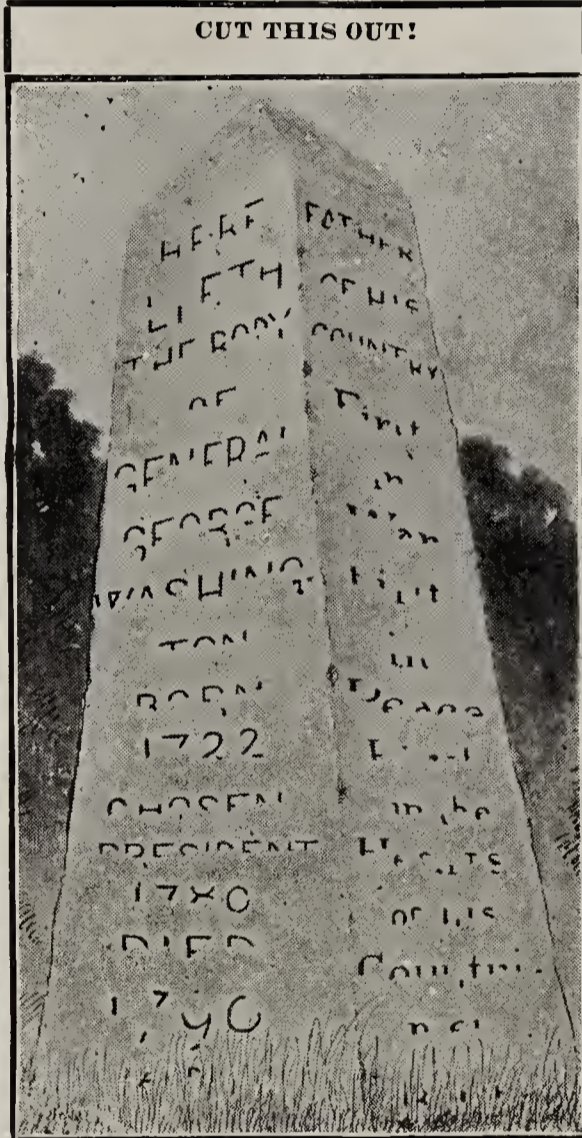 CUT THIS OUT!
HERE
LIETH
THE BODY
OF
GENERAL
GEORGE
WASHING-
TON
BORN
CHOSEN
PRESIDENT
DIED
FATHER
OF HIS
COUNTRY
First
in
War
First
in
Peace
First
in the
Hearts
of his
Country-
men